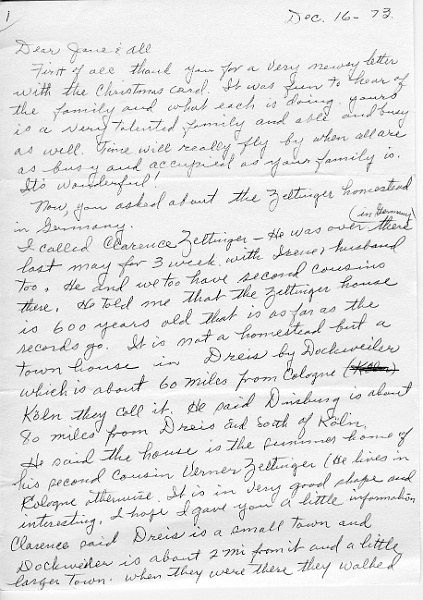 1
Dec. 16- 73.
Dear Jane & all
First of all thank you for a very newsy letter
with the Christmas card. It was fun to hear of
the family and what each is doing. yours
is a very talented family and able and busy
as well. Time will really fly by when all are
as busy and occupied as your family is.
It's wonderful!
Now, you asked about the Zeltinger homestead
in Germany.
(in Germany)
I called Clarence Zeltinger - He was over there
last may for 3 week. with Irene, husband
too. He and we too have second cousins
there. He told me that the Zeltinger house
is 600 years old that is as far as the
records go. It is not a homestead but a
town house in Dreis by Dockweiler
which is about 60 miles from Cologne
Köln they call it. He said Duisburg is about
80 miles from Dreis and South of Köln.
He said the house is the summer home of
his second cousin Verner Zeltinger (He lives in
Cologne otherwise. It is in very good shape and
interesting. I hope I gave you a little information
Clarence said Dreis is a small town and
Dockweiler is about 2 mi from it and a little
larger town. When they were there they walked